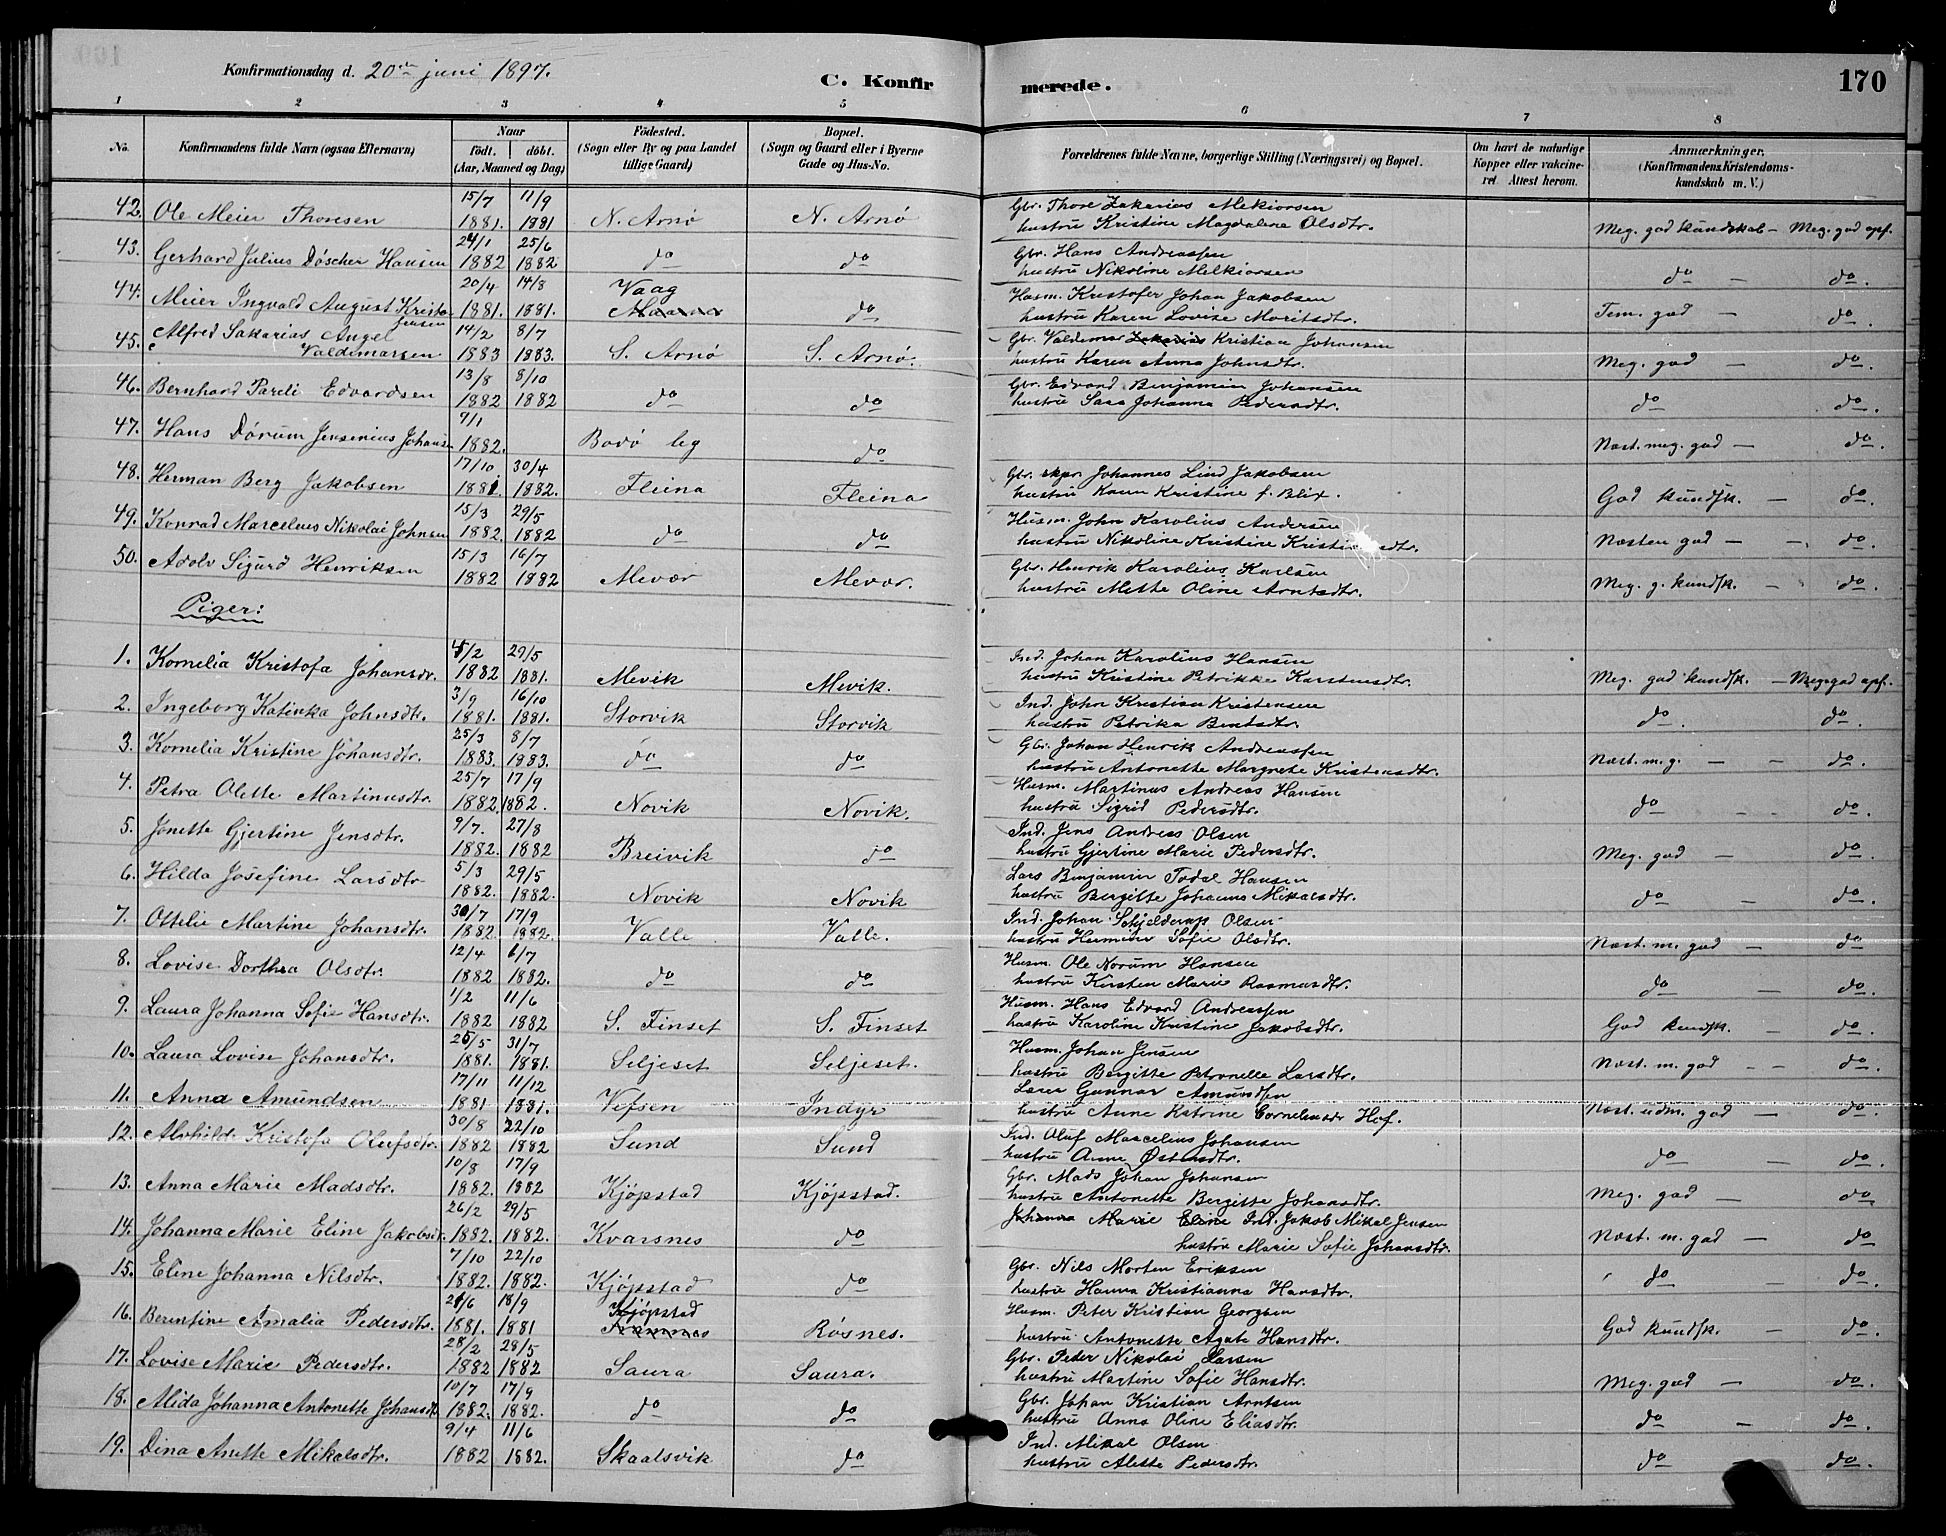 Konfirmationsdag d. 20de juni 1897.
C. Konfirmerede.
170
1 2 3 4 5 6 7 8
No. Konfirmandens fulde Navn (ogsaa Efternavn) Naar født. døbt. (Aar, Maaned og Dag) Fødested. (Sogn eller By og paa Landet tillige Gaard) Bopæl. (Sogn og Gaard eller i Byerne Gade og Hus-No. Forældrenes fulde Navne, borgerlige Stilling (Næringsvei) og Bopæl. Om havt de naturlige Kopper eller vakcineret. Attest herom. Anmærkninger. (Konfirmandens Kristendomskundskab m. V.)
42. Ole Meier Thoresen 15/7 1881. 11/9 1881 N. Arnø N. Arnø Gbr. Thore Zakarias Mekiorsen
hustru Kristine Magdalene Olsdtr. Meg. god kundskab - Meg. god opf.
43. Gerhard Julius Döscher Hansen 24/1 1882 25/6 1882 do do Gbr. Hans Andreassen
hustru Nikoline Melkiorsen do - do.
44. Meier Ingvald August Kristofersen 20/4 1881. 14/8 1881. Vaag do Husm. Kristofer Johan Jakobsen
hustru Karen Lovise Moritsdtr. Tem. god - do.
45. Alfred Sakarias Angel Valdemarsen 14/2 1883 8/7 1883. S. Arnø S. Arnø. Gbr. Valdemar Zakarias Kristian Johansen
hustru Karen Anna Johnsdtr. Meg. god - do.
46. Bernhard Pareli Edvardsen 13/8 1882 8/10 1882 do do Gbr. Edvard Benjamin Johansen
hustru Sara Johanna Pedersdtr. do do.
47. Hans Dörum Jensenius Johans 9/1 1882. Bodø leg do Næst. meg. god - do.
48. Herman Berg Jakobsen 17/10 1881. 30/4 1882. Fleina Fleina Gbr. skpr. Johannes Lind Jakobsen
hustru Karen Kristine f. Blix. God kundsk. - do.
49. Konrad Marcelius Nikolai Johnsen 15/3 1882. 29/5 1882 do do Husm. John Karolius Andersen
hustru Nikoline Kristine Næsten god - do.
50. Adolv Sigurd Henriksen 15/3 1882 16/7 1882 Mevær Mevær. Gbr. Henrik Karolius Karlsen
hustru Mette Oline Arntsdtr. Meg. g. kundsk. - do.
Piger:
1. Kornelia Kristofa Johansdr. 5/2 1882 29/5 1881. Mevik Mevik. Ind. Johan Karolius Hansen
hustru Kristine Petrikke Karstensdtr. Meg. god kundsk. - Meg. god opf.
2. Ingeborg Katinka Johnsdtr. 3/9 1881. 16/10 1881. Storvik Storvik Ind. John Kristian Kristensen
hustru Petrika Bentsdtr. do. do.
3. Kornelia Kristine Johansdtr. 25/3 1883. 8/7 1883. do do Gbr. Johan Henrik Andreassen
hustru Antonette Margrete Kristensdtr. Næst. m. g. - do.
4. Petra Olette Martinusdtr. 25/7 1882. 17/9 1882. Novik Novik. Husm. Martinus Andreas Hansen
hustru Sigrid Pedersdtr. do do.
5. Jonette Gjertine Jensdtr. 9/7. 1882. 27/8 1882 Breivik do Ind. Jens Andreas Olsen
hustru Gjertine Marie Pedersdtr. Meg. god - do.
6. Hilda Josefine Larsdtr 5/3 1882. 29/5 1882. Novik Novik Lars Benjamin Todal Hansen
hustru Bergitte Johanna Mikalsdtr. do - do.
7. Ottelie Martine Johansdtr. 30/7 1882. 17/9 1882. Valle Valle. Ind. Johan Schjelderup Olsen
hustru Sofie Olsdtr. Næst. m. god - do
8. Lovise Dorthea Olsdtr. 12/4 1882 6/7 1882. do do Husm. Ole Norum Hansen
hustru Kirsten Marie Rasmusdtr. do - do.
9. Laura Johanna Sofie Hansdtr. 1/2 1882 11/6 1882 S. Finset S. Finset Husm. Hans Edvard Andreassen
hustru Karoline Kristine Jakobsdtr. God kundsk. - do.
10. Laura Lovise Johansdtr. 25/5 1881. 31/7 1881. Seljeset Seljeset. Husm. Johan Jensen
hustru Bergitte Petronelle Larsdtr. Næst. m. god - do.
11. Anna Amundsen 17/11 1881 11/12 1881. Vefsen Indyr Lærer Gunnar Amundsen
hustru Anne Katrine Hof. Næst. udm. god - do.
12. Alvhild Kristofa Olufsdtr. 30/8 1882 22/10 1882 Sund Sund Ind. Oluf Marcelius Johansen
hustru Anne Østensdtr. do - do.
13. Anna Marie Madsdtr. 10/8 1882. 17/9 1882 Kjøpstad Kjøpstad. Gbr. Mads Johan Johansen
hustru Antonette Bergitte Johansdtr. Meg. god - do
14. Johanna Marie Eline Jakobsdr. 26/2 1882. 29/5 1882. Kvarsnes do Johanna Marie Eline Ind. Jakob Mikal Jensen
hustru Marie Sofie Johansdtr. Næst. m. god - do
15. Eline Johanna Nilsdtr. 7/10 1882. 22/10 1882. Kjøpstad do Gbr. Nils Morten Eriksen
hustru Hanna Kristianna Hansdtr. do - do.
16. Berentine Amalia Pedersdtr. 21/6 1881. 18/9 1881 Kjøpstad Røsnes. Husm. Peter Kristian Georgsen
hustru Antonette Agate Hansdtr. God kundsk. - do.
17. Lovise Marie Pedersdtr. 28/2 1882 28/5 1882 Saura Saura. Gbr. Peder Nikolai Larsen
hustru Martine Sofie Hansdtr. Meg. god - do.
18. Alida Johanna Antonette Johansdtr 10/7 1882. 17/9 1882. do do Gbr. Johan Kristian Arntsen
hustru Anna Oline Eliasdtr. do - do.
19. Dina Anette Mikalsdtr. 9/4 1882 11/6 1882. Skaalsvik do Ind. Mikal Olsen
hustru Alette Pedersdtr. do - do.